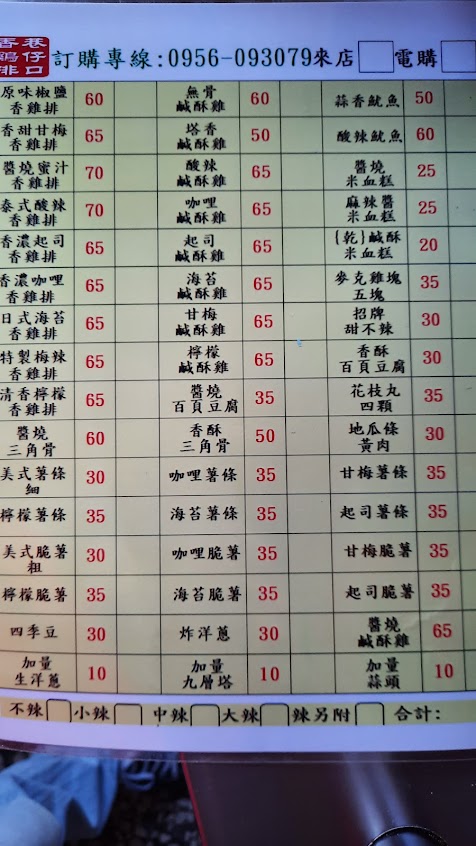 香巷
鷄仔
排口
訂購專線:0956-093079來店 電購
原味椒鹽 香雞排 60 無骨 鹹酥雞 60 蒜香魷魚 50
香甜甘梅 香雞排 65 塔香 鹹酥雞 50 酸辣魷魚 60
醬燒蜜汁 香雞排 70 酸辣 鹹酥雞 65 醬燒 米血糕 25
泰式酸辣 香雞排 70 咖哩 鹹酥雞 65 麻辣醬 米血糕 25
香濃起司 香雞排 65 起司 鹹酥雞 65 {乾}鹹酥 米血糕 20
香濃咖哩 香雞排 65 海苔 鹹酥雞 65 麥克雞塊 五塊 35
日式海苔 香雞排 65 甘梅 鹹酥雞 65 招牌 甜不辣 30
特製梅辣 香雞排 65 檸檬 鹹酥雞 65 香酥 百頁豆腐 30
清香檸檬 香雞排 65 醬燒 百頁豆腐 35 花枝丸 四顆 35
醬燒 三角骨 60 香酥 三角骨 50 地瓜條 黃肉 30
美式薯條 細 30 咖哩薯條 35 甘梅薯條 35
檸檬薯條 35 海苔薯條 35 起司薯條 35
美式脆薯 粗 30 咖哩脆薯 35 甘梅脆薯 35
檸檬脆薯 35 海苔脆薯 35 起司脆薯 35
四季豆 30 炸洋蔥 30 醬燒 鹹酥雞 65
加量 生洋蔥 10 加量 九層塔 10 加量 蒜頭 10
不辣 小辣 中辣 大辣 辣另附 合計: